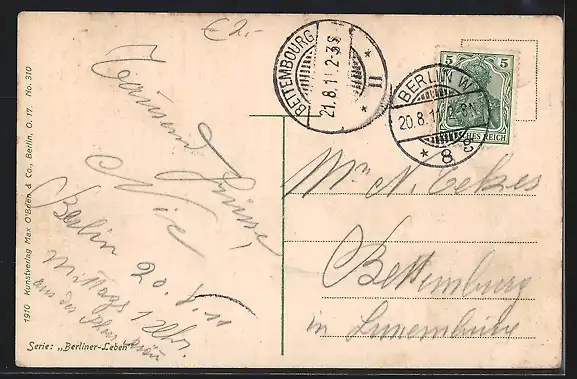 €2.-
Tausend
Grüsse,
Nic
Berlin 20.8.11
Mittags 12 Uhr.
aus der
Mr N.
Bettemburg
in Luxemburg
BETTEMBOURG
21.8.11 2-3S
11
BERLIN W
20.8.11 2-3N
* 8 g
5 5
DEUTSCHES REICH
1910 Kunstverlag Max O'Brien & Co., Berlin, O. 17. No. 310
Serie: „Berliner-Leben"